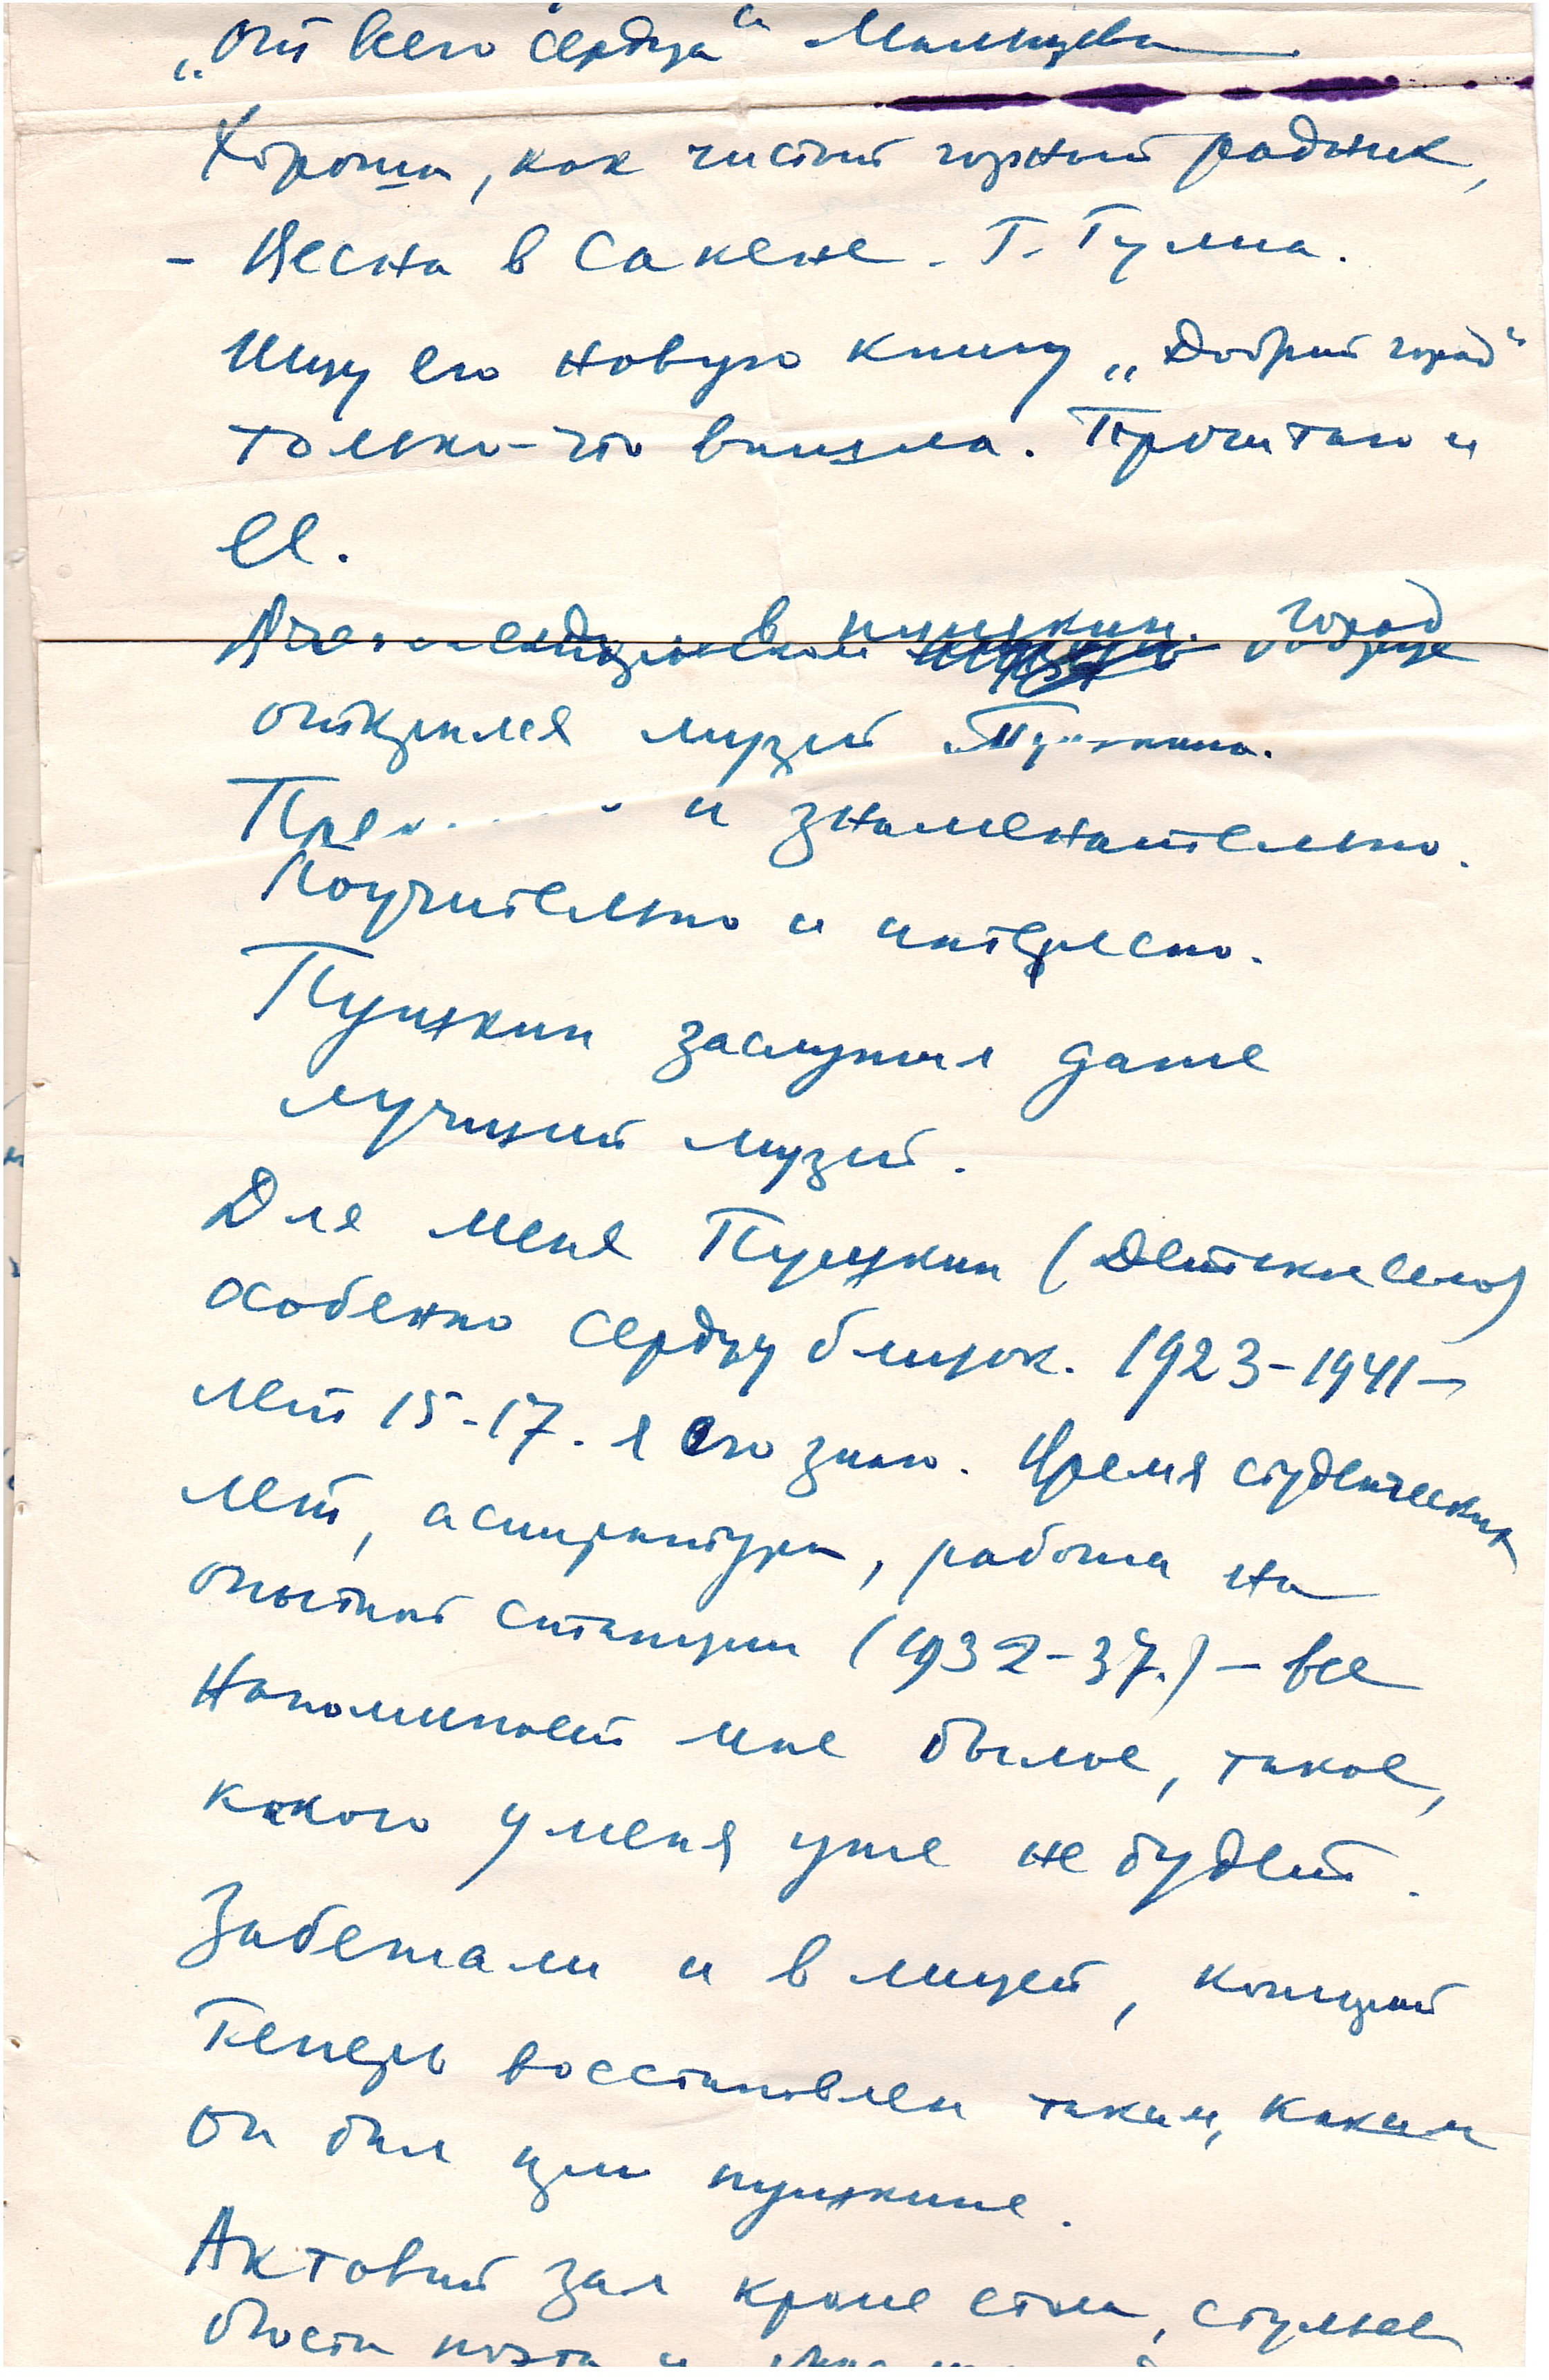 „От всего сердца“ Мальцева
Хороша, как чистый горный родник,
- Весна в Сакене. Г. Гулиа.
Ищу его новую книгу „Добрый город“
только-что вышла. Прочитаю и
ее.
в пушкин. город
открылся музей Пушкина.
и знаменательно.
Поучительно и интересно.
Пушкин заслужил даже
лучший музей.
Для меня Пушкин (Детское село)
особенно сердцу близок. 1923-1941-
лет 15-17. я его знаю. Время студенческих
лет, аспирантура, работа на
опытной станции (1932-37.) - все
напоминает мне былое, такое,
какого у меня уже не будет.
Забегали и в лицей, который
теперь восстановлен таким, каким
он был при пушкине.
Актовый зал кроме стола, стульев
бюста поэта и